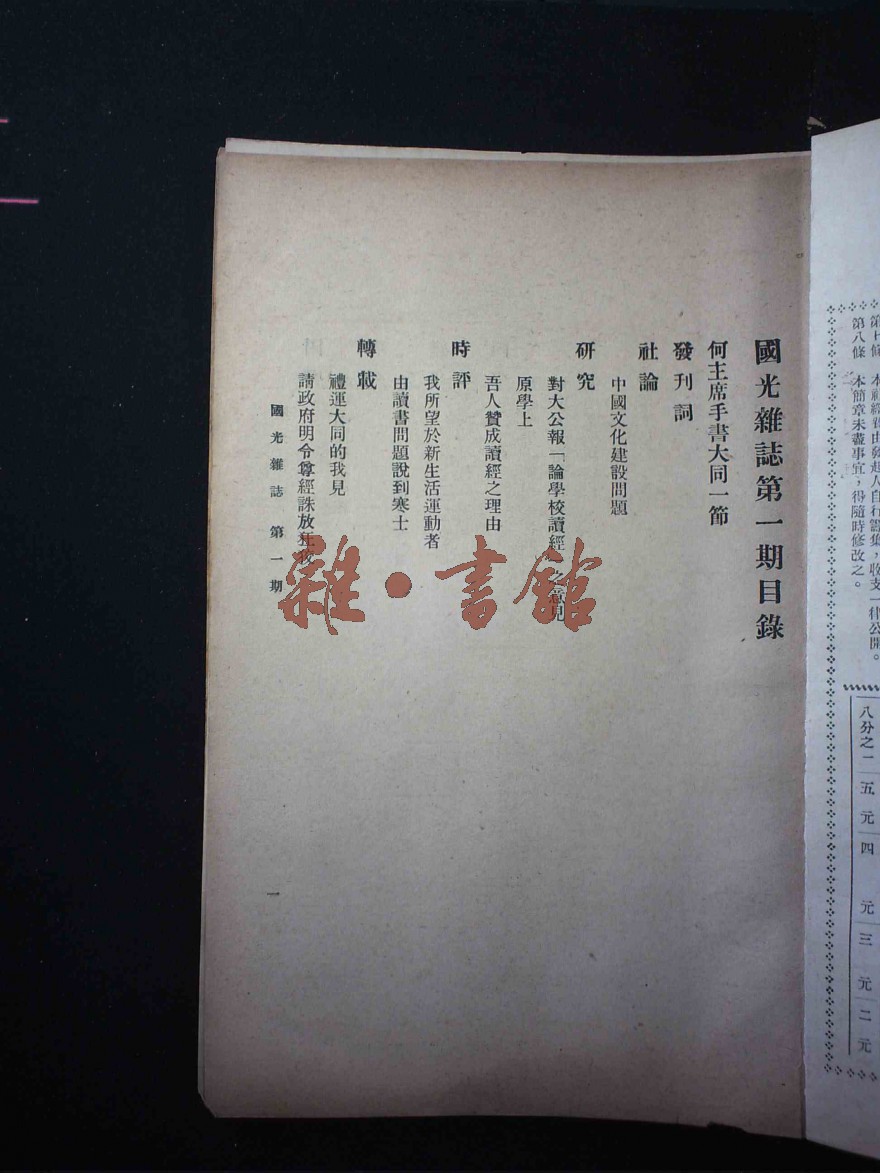 第八條　本簡章未盡事宜，得隨時修改之。
八分之一　五元　四元　三元　二元
國光雜誌第一期目錄
何主席手書大同一節
發刊詞
社論
中國文化建設問題
研究
對大公報「論學校讀經　意見
原學上
吾人贊成讀經之理由
時評
我所望於新生活運動者
由讀書問題說到寒士
轉載
禮運大同的我見
請政府明令尊經誅放狂
國光雜誌　第一期
一
雜·書館